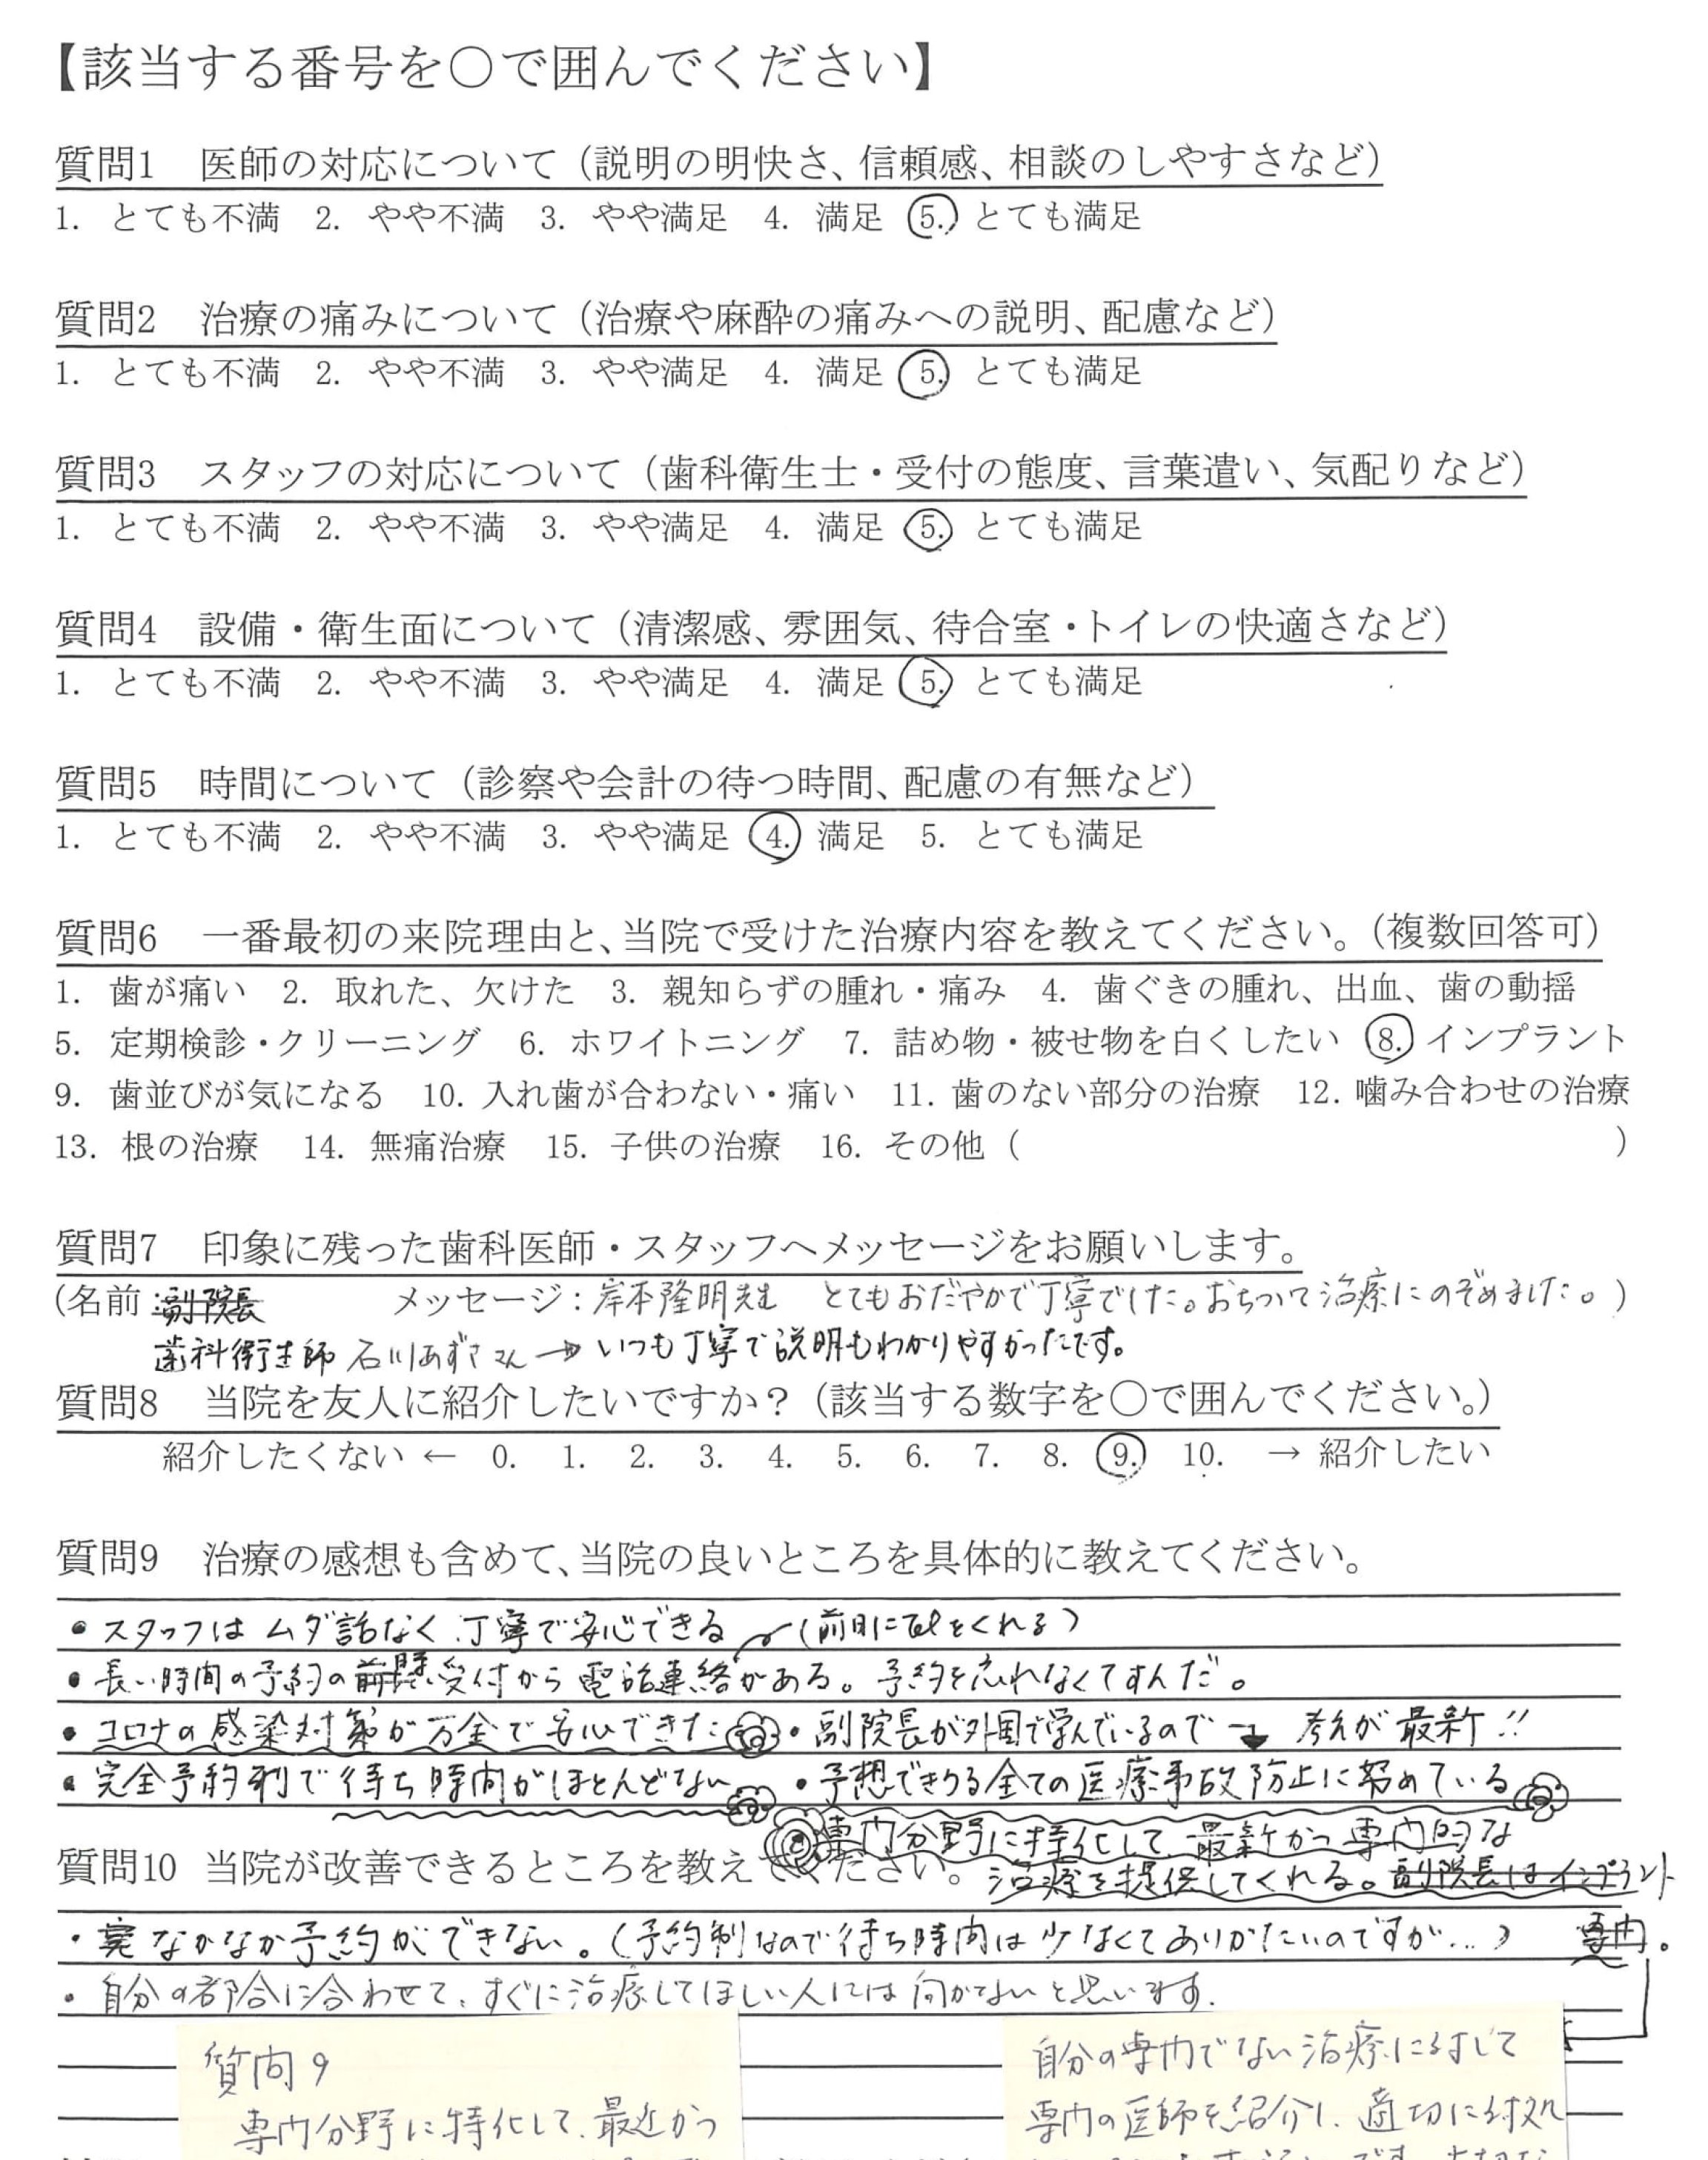 【該当する番号を〇で囲んでください】
質問1　医師の対応について（説明の明快さ、信頼感、相談のしやすさなど）
1. とても不満　2. やや不満　3. やや満足　4. 満足　5. とても満足
質問2　治療の痛みについて（治療や麻酔の痛みへの説明、配慮など）
1. とても不満　2. やや不満　3. やや満足　4. 満足　5. とても満足
質問3　スタッフの対応について（歯科衛生士・受付の態度、言葉遣い、気配りなど）
1. とても不満　2. やや不満　3. やや満足　4. 満足　5. とても満足
質問4　設備・衛生面について（清潔感、雰囲気、待合室・トイレの快適さなど）
1. とても不満　2. やや不満　3. やや満足　4. 満足　5. とても満足
質問5　時間について（診察や会計の待つ時間、配慮の有無など）
1. とても不満　2. やや不満　3. やや満足　4. 満足　5. とても満足
質問6　一番最初の来院理由と、当院で受けた治療内容を教えてください。（複数回答可）
1. 歯が痛い　2. 取れた、欠けた　3. 親知らずの腫れ・痛み　4. 歯ぐきの腫れ、出血、歯の動揺
5. 定期検診・クリーニング　6. ホワイトニング　7. 詰め物・被せ物を白くしたい　8. インプラント
9. 歯並びが気になる　10. 入れ歯が合わない・痛い　11. 歯のない部分の治療　12. 噛み合わせの治療
13. 根の治療　14. 無痛治療　15. 子供の治療　16. その他（　）
質問7　印象に残った歯科医師・スタッフへメッセージをお願いします。
（名前：副院長　メッセージ：岸本隆明先生　とてもおだやかで丁寧でした。おちついて治療にのぞめました。）
歯科衛生師 石川あずささん→いつも丁寧で説明もわかりやすかったです。
質問8　当院を友人に紹介したいですか？（該当する数字を〇で囲んでください。）
紹介したくない ← 0. 1. 2. 3. 4. 5. 6. 7. 8. 9. 10. → 紹介したい
質問9　治療の感想も含めて、当院の良いところを具体的に教えてください。
・スタッフは ムダ話なく 丁寧で安心できる （前日にTelをくれる）
・長い時間の予約の 受付から 電話連絡がある。予約を忘れなくてすんだ。
・コロナの感染対策が万全で安心できた ・副院長が外国で学んでいるので → 考えが最新!!
・完全予約制で待ち時間がほとんどない ・予想できうる全ての医療事故防止に努めている
専門分野に特化して、最新かつ専門的な
質問10 当院が改善できるところを教えてください。 治療を提供してくれる。副院長はインプラント
・なかなか予約ができない。（予約制なので待ち時間は少なくてありがたいのですが...） 専門。
・自分の都合に合わせて、すぐに治療してほしい人には向かないと思います。
質問9
専門分野に特化して、最近かつ
自分の専門でない治療に対して
専門の医師を紹介し、適切に対処